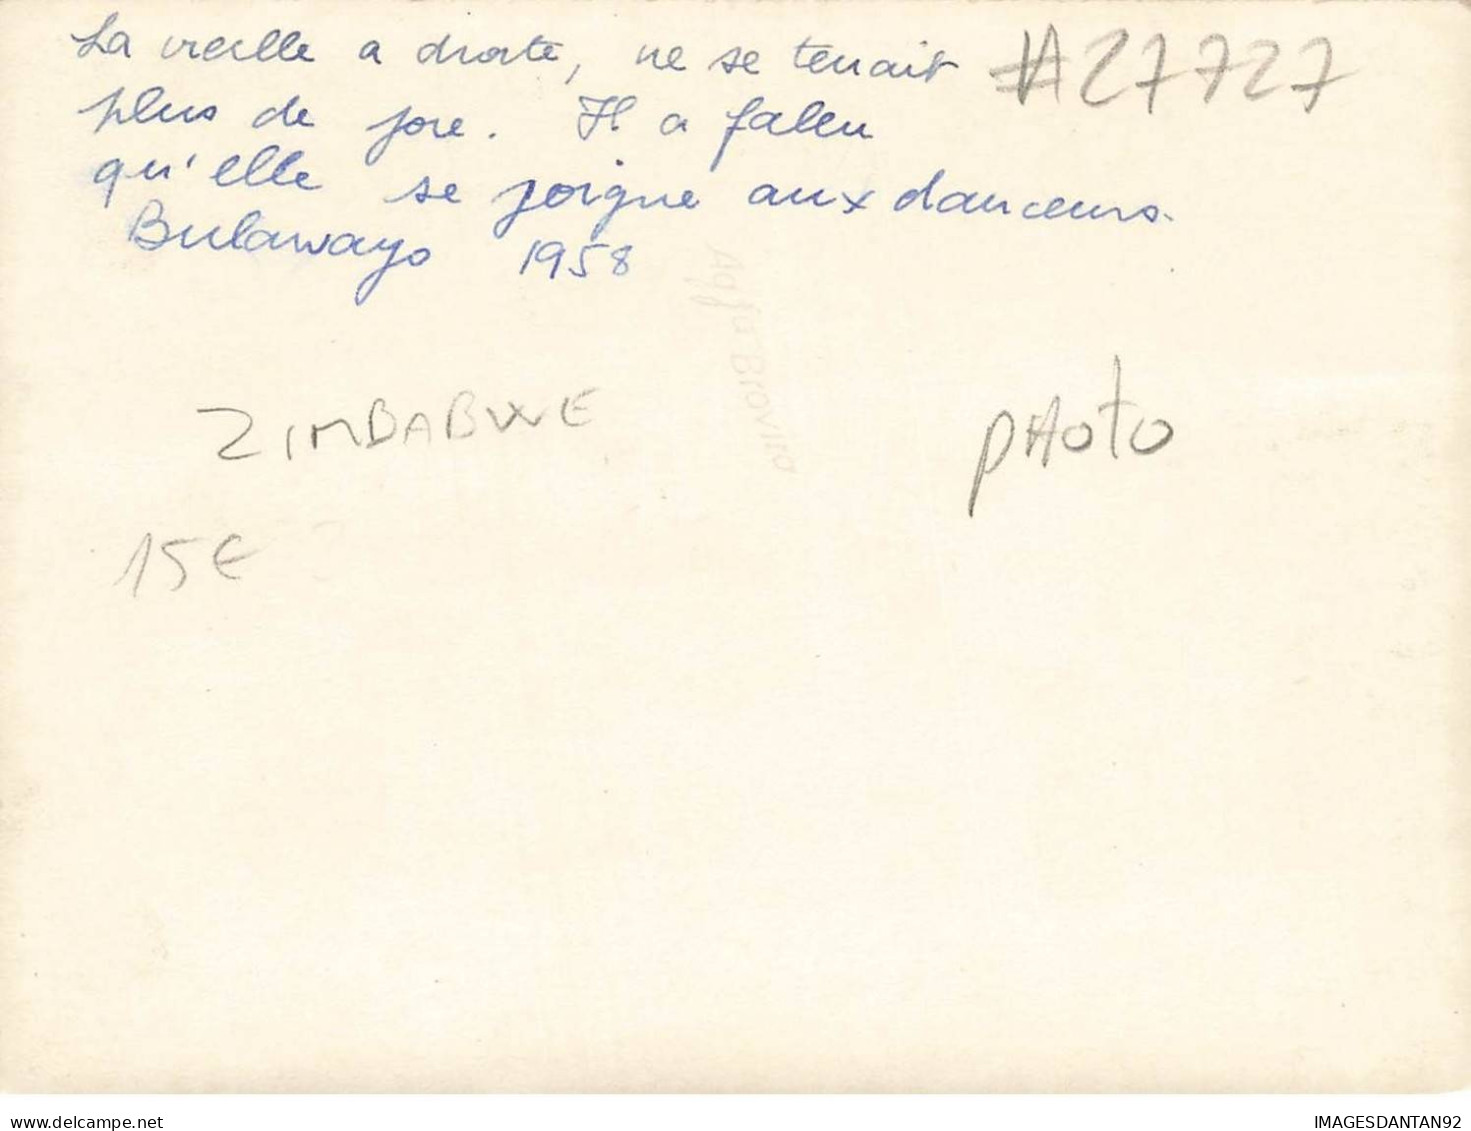 La vieille a droite, ne se tenait
plus de joie. Il a fallu
qu'elle se joigne aux danceurs.
Bulawayo 1958
#27727
Agfa Brovira
ZIMBABWE
PHOTO
15€
delcampe.net
IMAGESDANTAN92